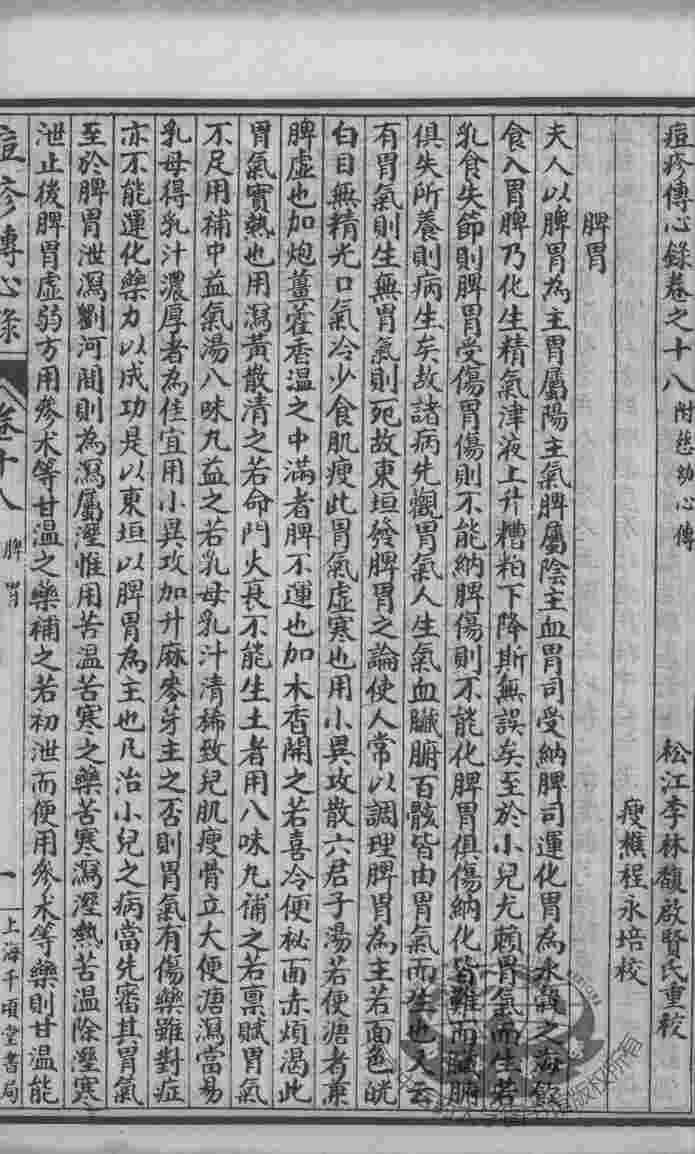 痘疹傳心錄卷之十八 附慈幼心傳
松江李林馥啟賢氏重校
瘦樵程永培校
脾胃
夫人以脾胃為主胃屬陽主氣脾屬陰主血胃司受納脾司運化胃為水穀之海飲
食入胃脾乃化生精氣津液上升糟粕下降斯無誤矣至於小兒尤賴胃氣而生若
乳食失節則脾胃受傷胃傷則不能納脾傷則不能化脾胃俱傷納化皆難而臟腑
俱失所養則病生矣故諸病先觀胃氣人生氣血臟腑百骸皆由胃氣而生也又云
有胃氣則生無胃氣則死故東垣發脾胃之論使人常以調理脾胃為主若面色㿠
白目無精光口氣冷少食肌瘦此胃氣虛寒也用小異攻散六君子湯若便溏者兼
脾虛也加炮薑藿香溫之中滿者脾不運也加木香開之若喜冷便祕面赤煩渴此
胃氣實熱也用瀉黃散清之若命門火衰不能生土者用八味丸補之若禀賦胃氣
不足用補中益氣湯八味丸益之若乳母乳汁清稀致兒肌瘦骨立大便溏瀉當易
乳母得乳汁濃厚者為佳宜用小異攻加升麻麥芽主之否則胃氣有傷藥雖對症
亦不能運化藥力以成功是以東垣以脾胃為主也凡治小兒之病當先審其胃氣
至於脾胃泄瀉劉河間則為瀉屬溼惟用苦溫苦寒之藥苦寒瀉溼熱苦溫除溼寒
泄止後脾胃虛弱方用參朮等甘溫之藥補之若初泄而便用參朮等藥則甘溫能
痘疹傳心錄 卷十八 脾胃 一 上海千頃堂書局